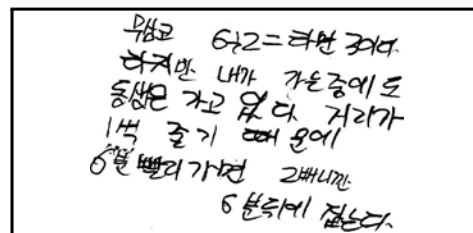 무섭고 6÷2=라면 3이다.
하지만 내가 가는중에도
동생은 가고 없다. 거리가
1씩 줄기 때문에
6분 빨리가면 2배니깐
6분뒤에 잡는다.